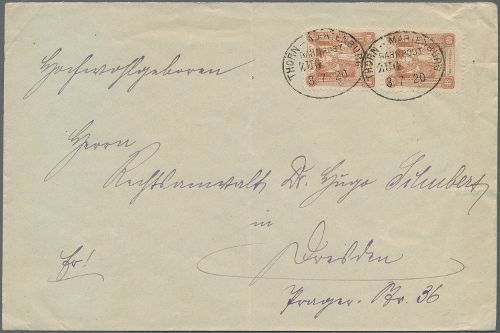 THORN - MARIENBURG
BAHNPOST
ZUG
3 1 20
THORN - MARIENBURG
BAHNPOST
ZUG
3 1 20
Hochwohlgeboren
Herrn
Rechtsanwalt Dr. Hugo
in
Fr!
Dresden
Prager-Str. 36